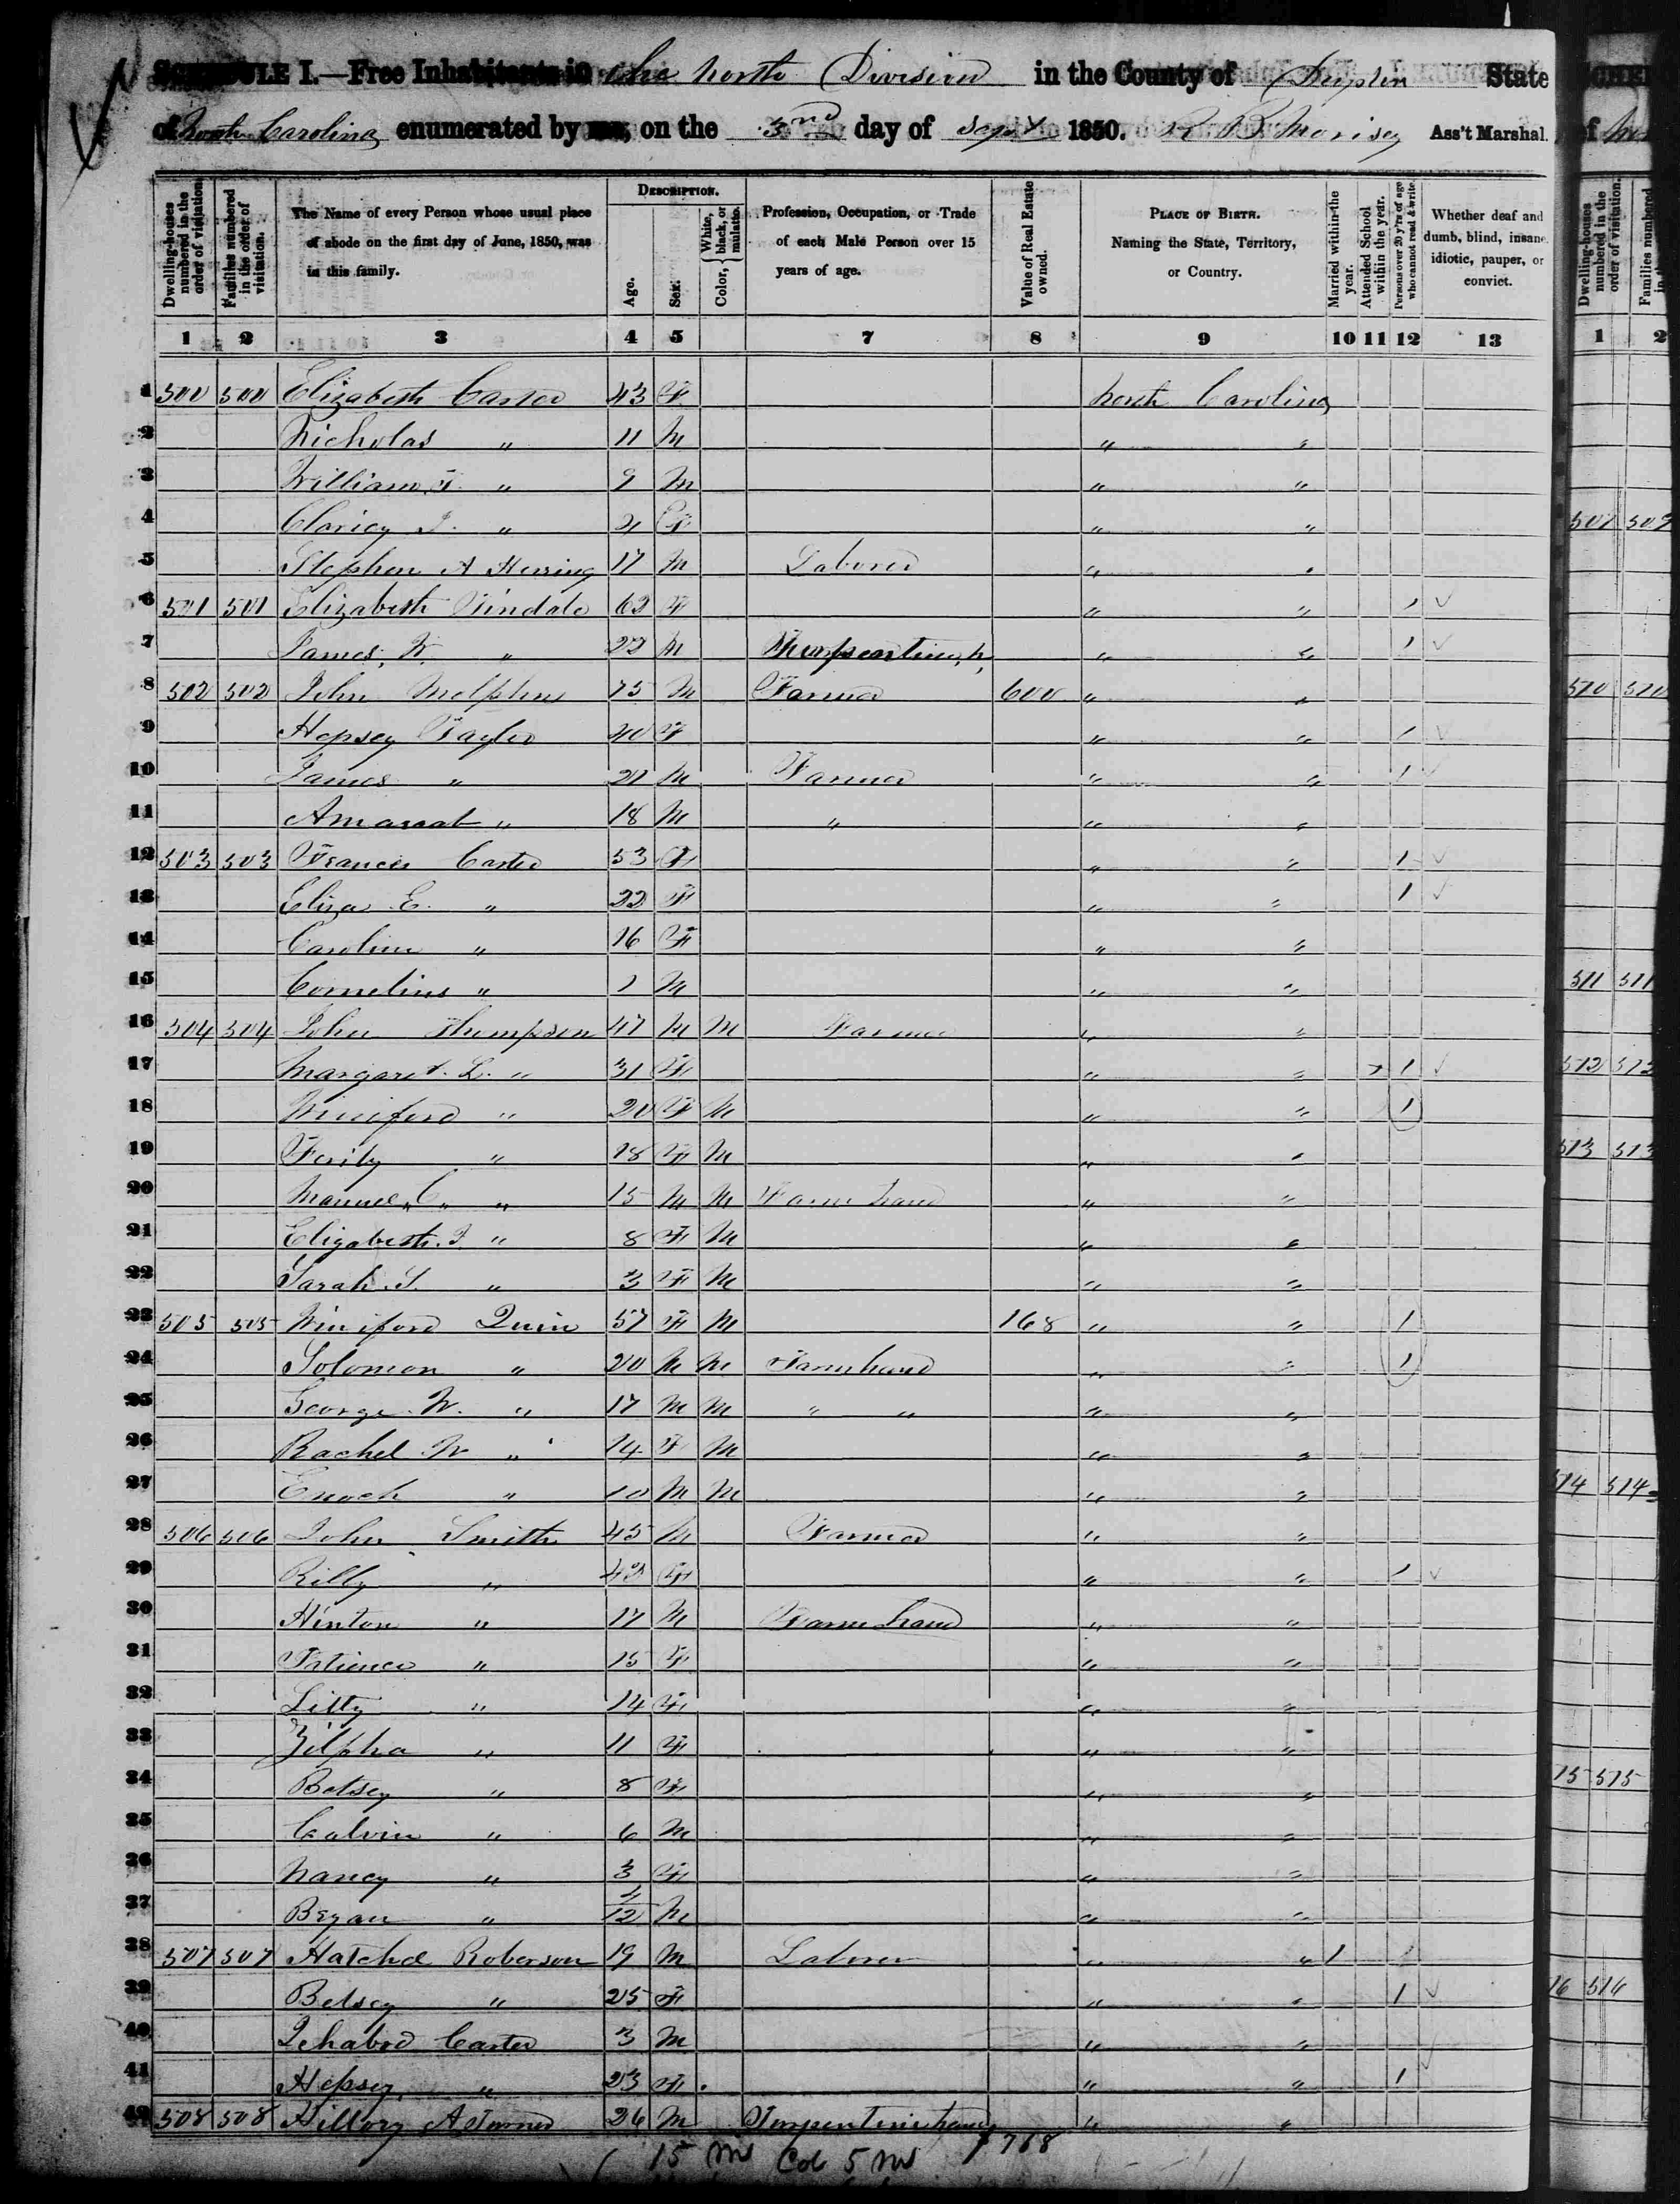 SCHEDULE I.—Free Inhabitants in the North Division in the County of Duplin State
of North Carolina enumerated by me, on the 3rd day of Sept 1850. R B Morisey Ass't Marshal.
Dwelling-houses numbered in the order of visitation. Families numbered in the order of visitation. The Name of every Person whose usual place of abode on the first day of June, 1850, was in this family. DESCRIPTION. Age. Sex. Color, White, black, or mulatto. Profession, Occupation, or Trade of each Male Person over 15 years of age. Value of Real Estate owned. PLACE OF BIRTH. Naming the State, Territory, or Country. Married within the year. Attended School within the year. Persons over 20 y'rs of age who cannot read & write. Whether deaf and dumb, blind, insane, idiotic, pauper, or convict.
1 2 3 4 5 7 8 9 10 11 12 13
1 500 500 Elizabeth Carter 43 F North Carolina
2 Nicholas " 11 M " "
3 William " 9 M " "
4 Claricy J. " 4 F " "
5 Stephen A Herring 17 M Laborer " "
6 501 501 Elizabeth Tindale 62 F " " 1
7 James W. " 22 M " " 1
8 502 502 John 75 M Farmer 600 " "
9 Hepsey Taylor 40 F " " 1
10 James " 21 M Farmer " " 1
11 " 18 M " " "
12 503 503 Frances Carter 53 F " " 1
13 Eliza E. " 22 F " " 1
14 Caroline " 16 F " "
15 Cornelius " 1 M " "
16 504 504 John Thompson 47 M M Farmer " "
17 Margaret L. " 31 F " " 1
18 Winiford " 20 F M " " 1
19 " 18 F M " "
20 Manuel C " 15 M M Farm hand " "
21 Elizabeth J. " 8 F M " "
22 Sarah S. " 3 F M " "
23 505 505 Winiford Quin 57 F M 168 " " 1
24 Solomon " 20 M M Farm hand " " 1
25 George W. " 17 M M " " " "
26 Rachel W " 14 F M " "
27 Enoch " 10 M M " "
28 506 506 John Smith 45 M Farmer " "
29 " 43 F " " 1
30 Hinton " 17 M Farm hand " "
31 Patience " 15 F " "
32 Litty " 14 F " "
33 Zilpha " 11 F " "
34 Betsey " 8 F " "
35 Calvin " 6 M " "
36 Nancy " 3 F " "
37 Bryan " /12 M " "
38 507 507 Roberson 19 M Laborer " " 1
39 Betsey " 25 F " " 1
40 Ichabod Carter 3 M " "
41 Hepsey " 23 F " " 1
42 508 508 Hillory A Turner 26 M Turpentine hand " "
15 M Col 5 M $768